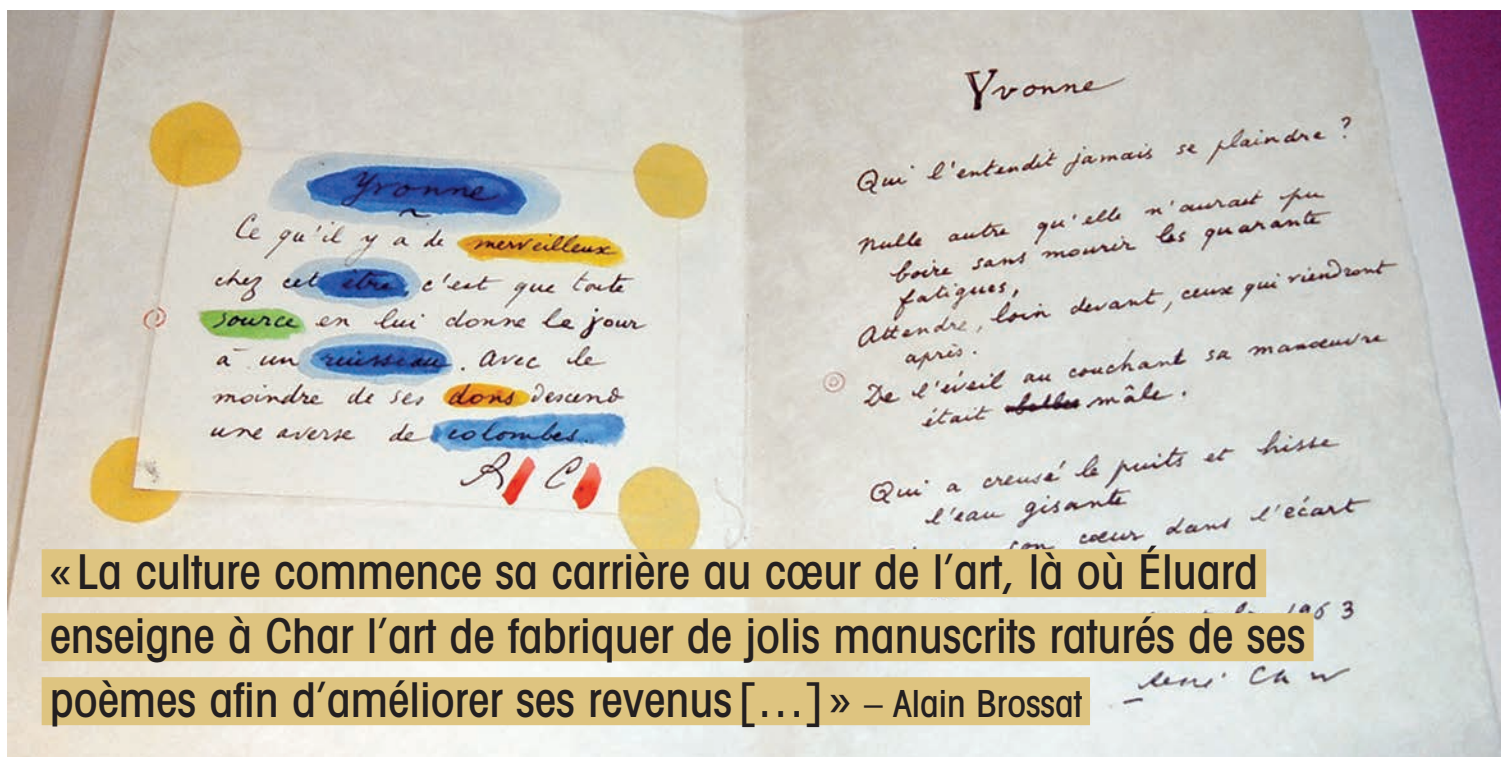 Yvonne
Ce qu'il y a de merveilleux
chez cet être, c'est que toute
source en lui donne le jour
à un ruisseau. Avec le
moindre de ses dons descend
une averse de colombes.
R C
Yvonne
Qui l'entendit jamais se plaindre ?
Nulle autre qu'elle n'aurait pu
boire sans mourir les quarante
fatigues,
Attendre, loin devant, ceux qui viendront
après.
De l'éveil au couchant sa manœuvre
était mâle.
Qui a creusé le puits et hisse
l'eau gisante
son cœur dans l'écart
1963
René Char
« La culture commence sa carrière au cœur de l'art, là où Éluard
enseigne à Char l'art de fabriquer de jolis manuscrits raturés de ses
poèmes afin d'améliorer ses revenus […] » – Alain Brossat